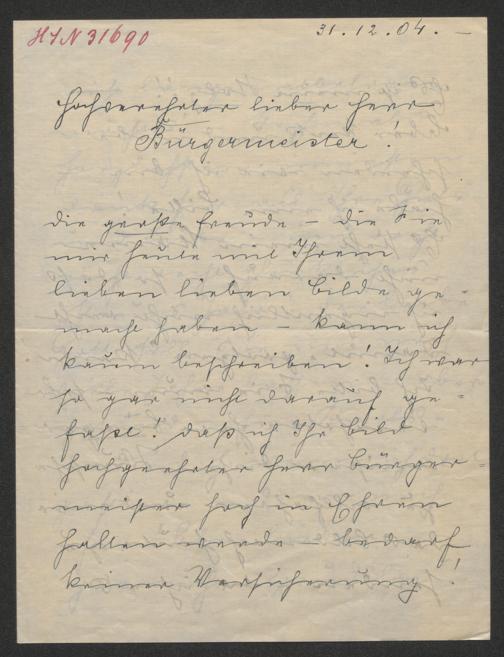 HIN 31690
31.12.04. —
Hochverehrter lieber Herr
Bürgermeister!
die große Freude – die Sie
mir heute mit Ihrem
lieben lieben Bilde ge-
macht haben – kann ich
kaum beschreiben! Ich war
so gar nicht darauf ge-
faßt! daß ich Ihr Bild
hochgeehrter Herr Bürger-
meister hoch in Ehren
halten werde – bedarf
keiner Versicherung!